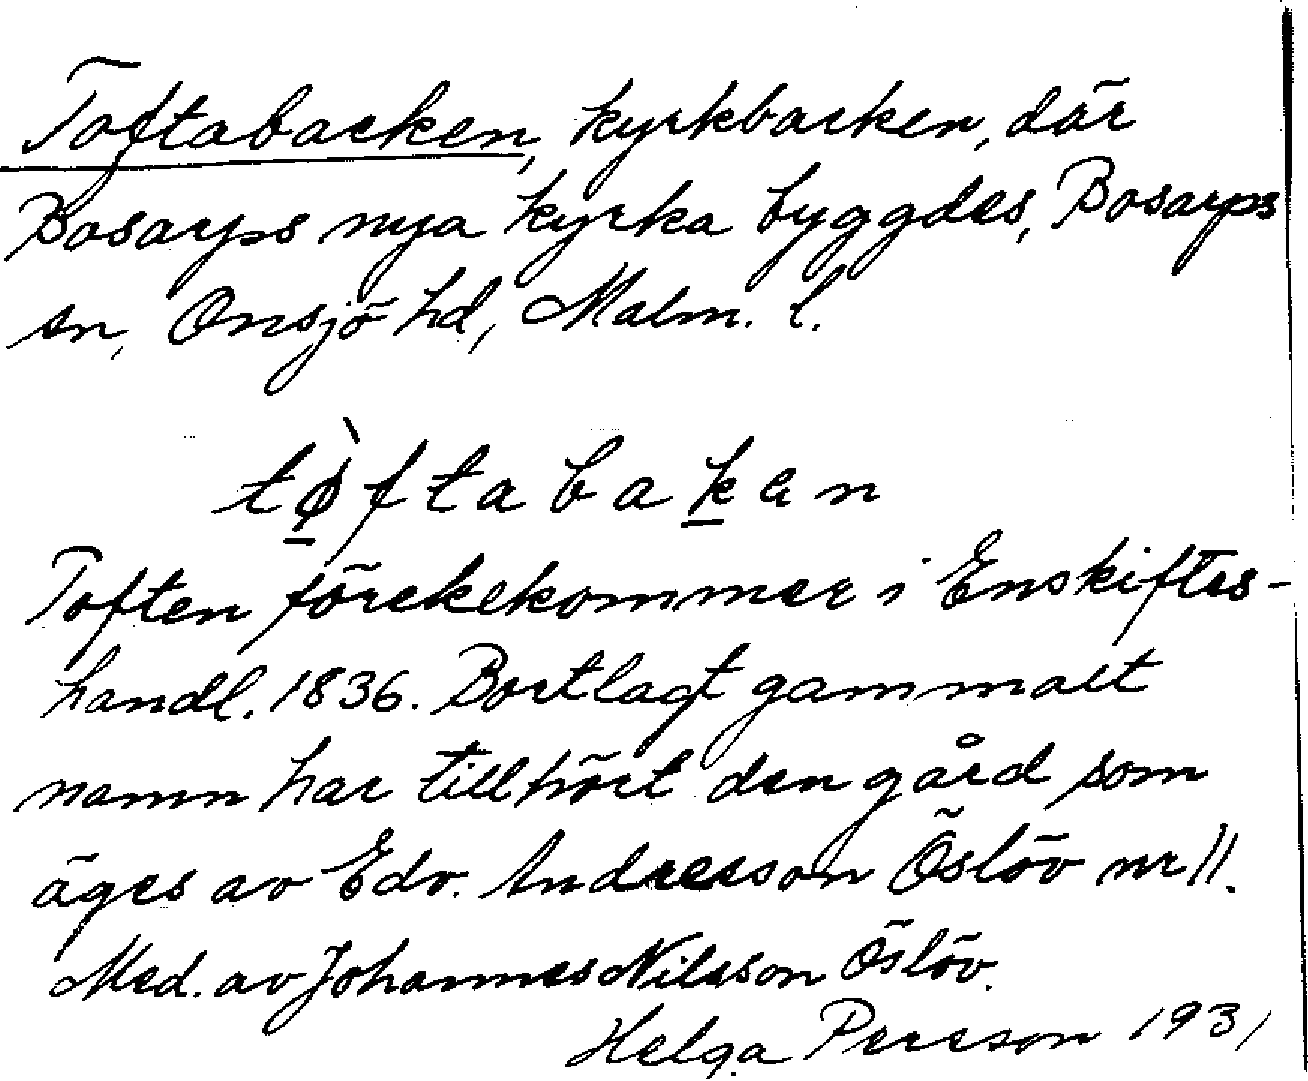 Toftabacken, kyrkbacken, där
Bosarps nya kyrka byggdes, Bosarps
sn, Onsjö hd, Malm. l.
tø̀ftabakan
Toften förekekommer i Enskiftes-
handl. 1836. Bortlagt gammalt
namn har tillhört den gård som
äges av Edv. Andreesson Öslöv nr 11.
Med. av Johannes Nilsson Öslöv.
Helga Persson 1931